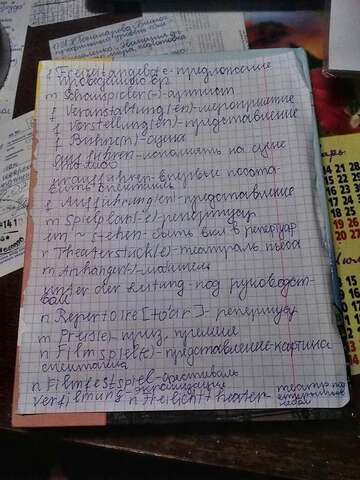 f Freizeitangebote - предложение
проведения во
m Schauspieler(-) - артист
f Veranstaltung(en) - мероприятие
f Vorstellung(en) - представление
f Bühne(n) - сцена
aufführen - исполнять на сцене
что либо
uraufführen - впервые поста
вить спектакль
f Aufführung(en) - представление
m Spielplan(¨e) - репертуар
im ~ stehen - быть вкл в репертуар
n Theaterstück(e) - театральн пьеса
m Anhänger(-) - любитель
unter der Leitung - под руководст-
вом
n Repertoire [toar] - репертуар
m Preis(e) - приз, премия
n Filmspiel(e) - представление картина
спектакль
n Filmfestspiel - фестиваль
Verfilmung - экранизация
n Freilichttheater - театр под
открытым
небом
141